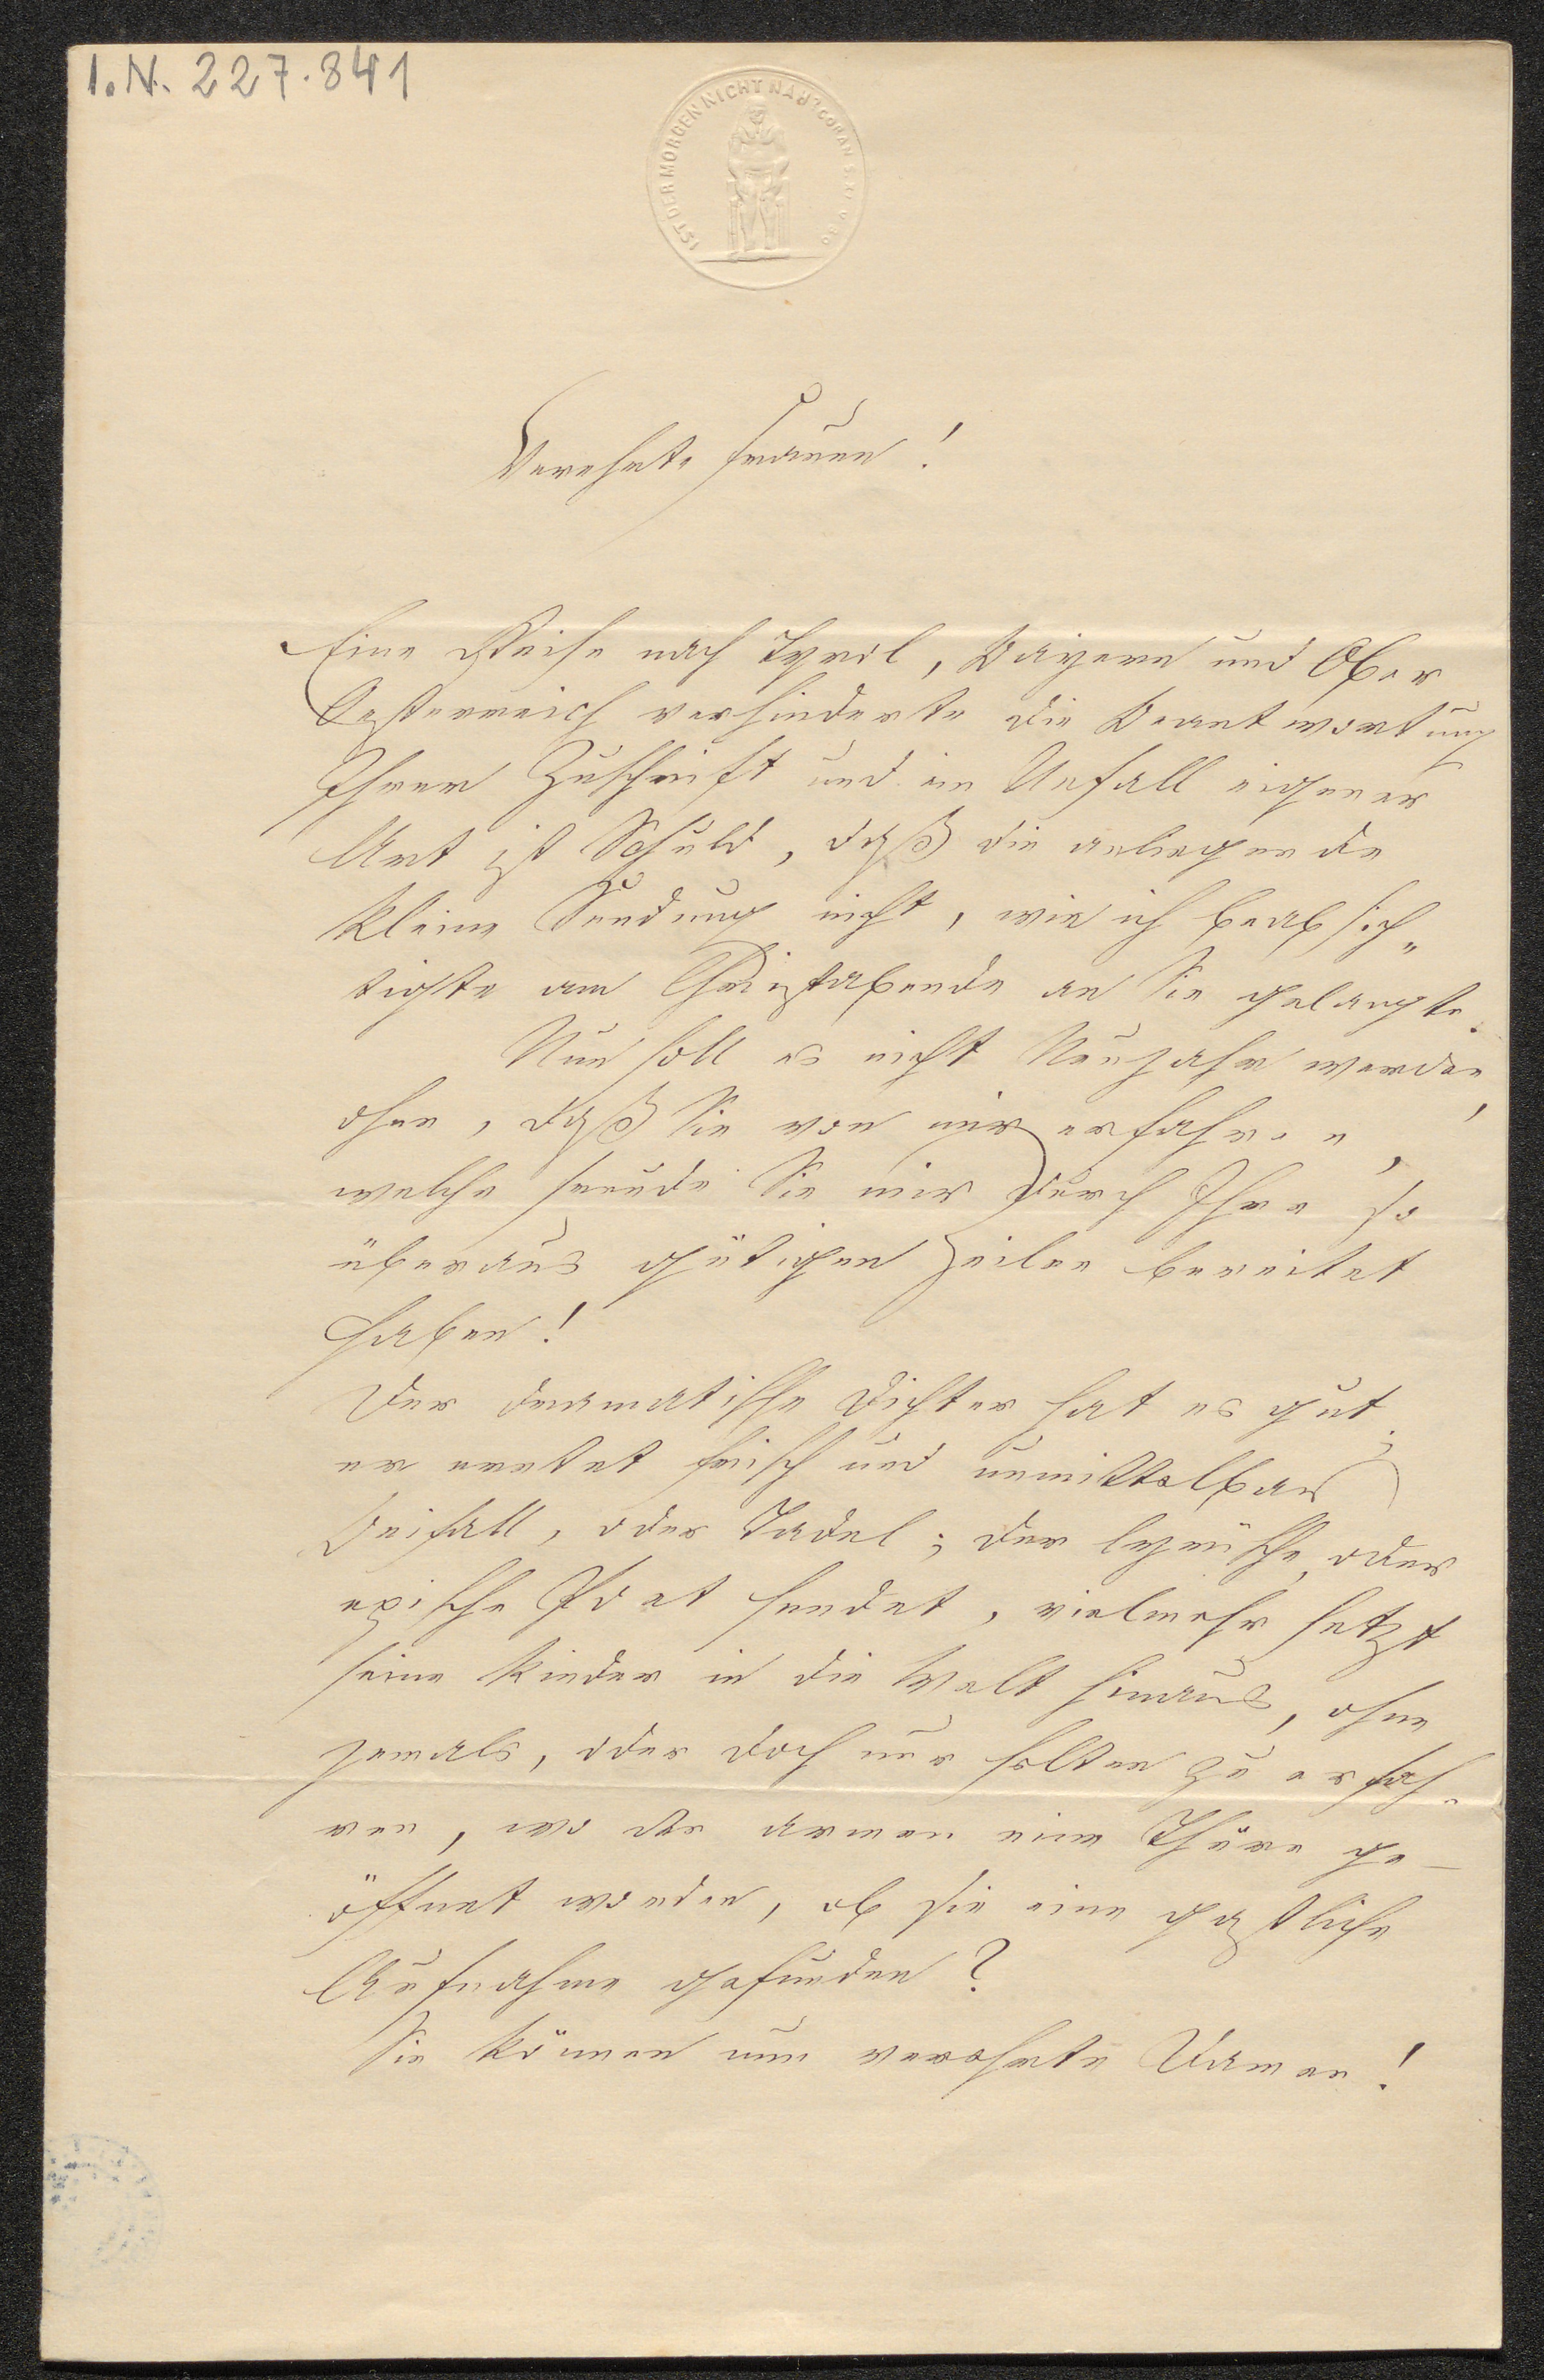 I.N. 227.841
IST DER MORDEN NICHT NAH? CORAN S. V.
Verehrte Frauen!
Eine Reise nach Tyrol, Bayern und Ober
Oesterreich verhinderte die Beantwortung
Ihrer Zuschrift und ein Unfall eigener
Art ist Schuld, daß die anliegende
kleine Sendung nicht, wie ich beabsich„
tigte am Christabende an Sie gelangte.
Nun soll es nicht Neujahr werden,
ohne, daß Sie von mir erfahren,
welche Freude Sie mir durch Ihre so
überaus gütigen Zeilen bereitet
haben!
Der dramatische Dichter hat es gut;
er erntet frisch und unmittelbar
Beifall, oder Tadel; der lyrische, oder
epische Poet sendet, vielmehr setzt
seine Kinder in die Welt hinaus, ohne
jemals, oder doch nur selten zu erfah-
ren, wo der armen eine Thüre ge-
öffnet worden, ob sie eine gastliche
Aufnahme gefunden?
Sie können nun verehrte Damen!